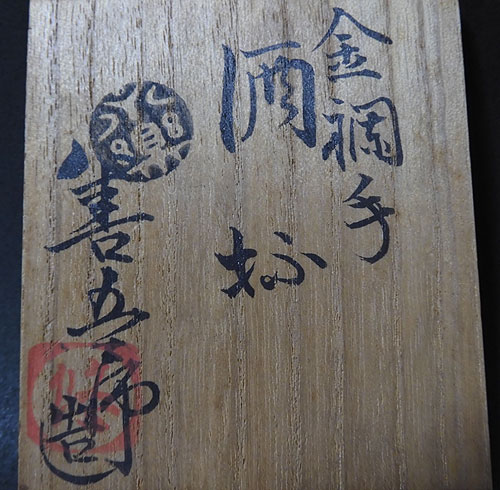 金襴手
酒
善五郎